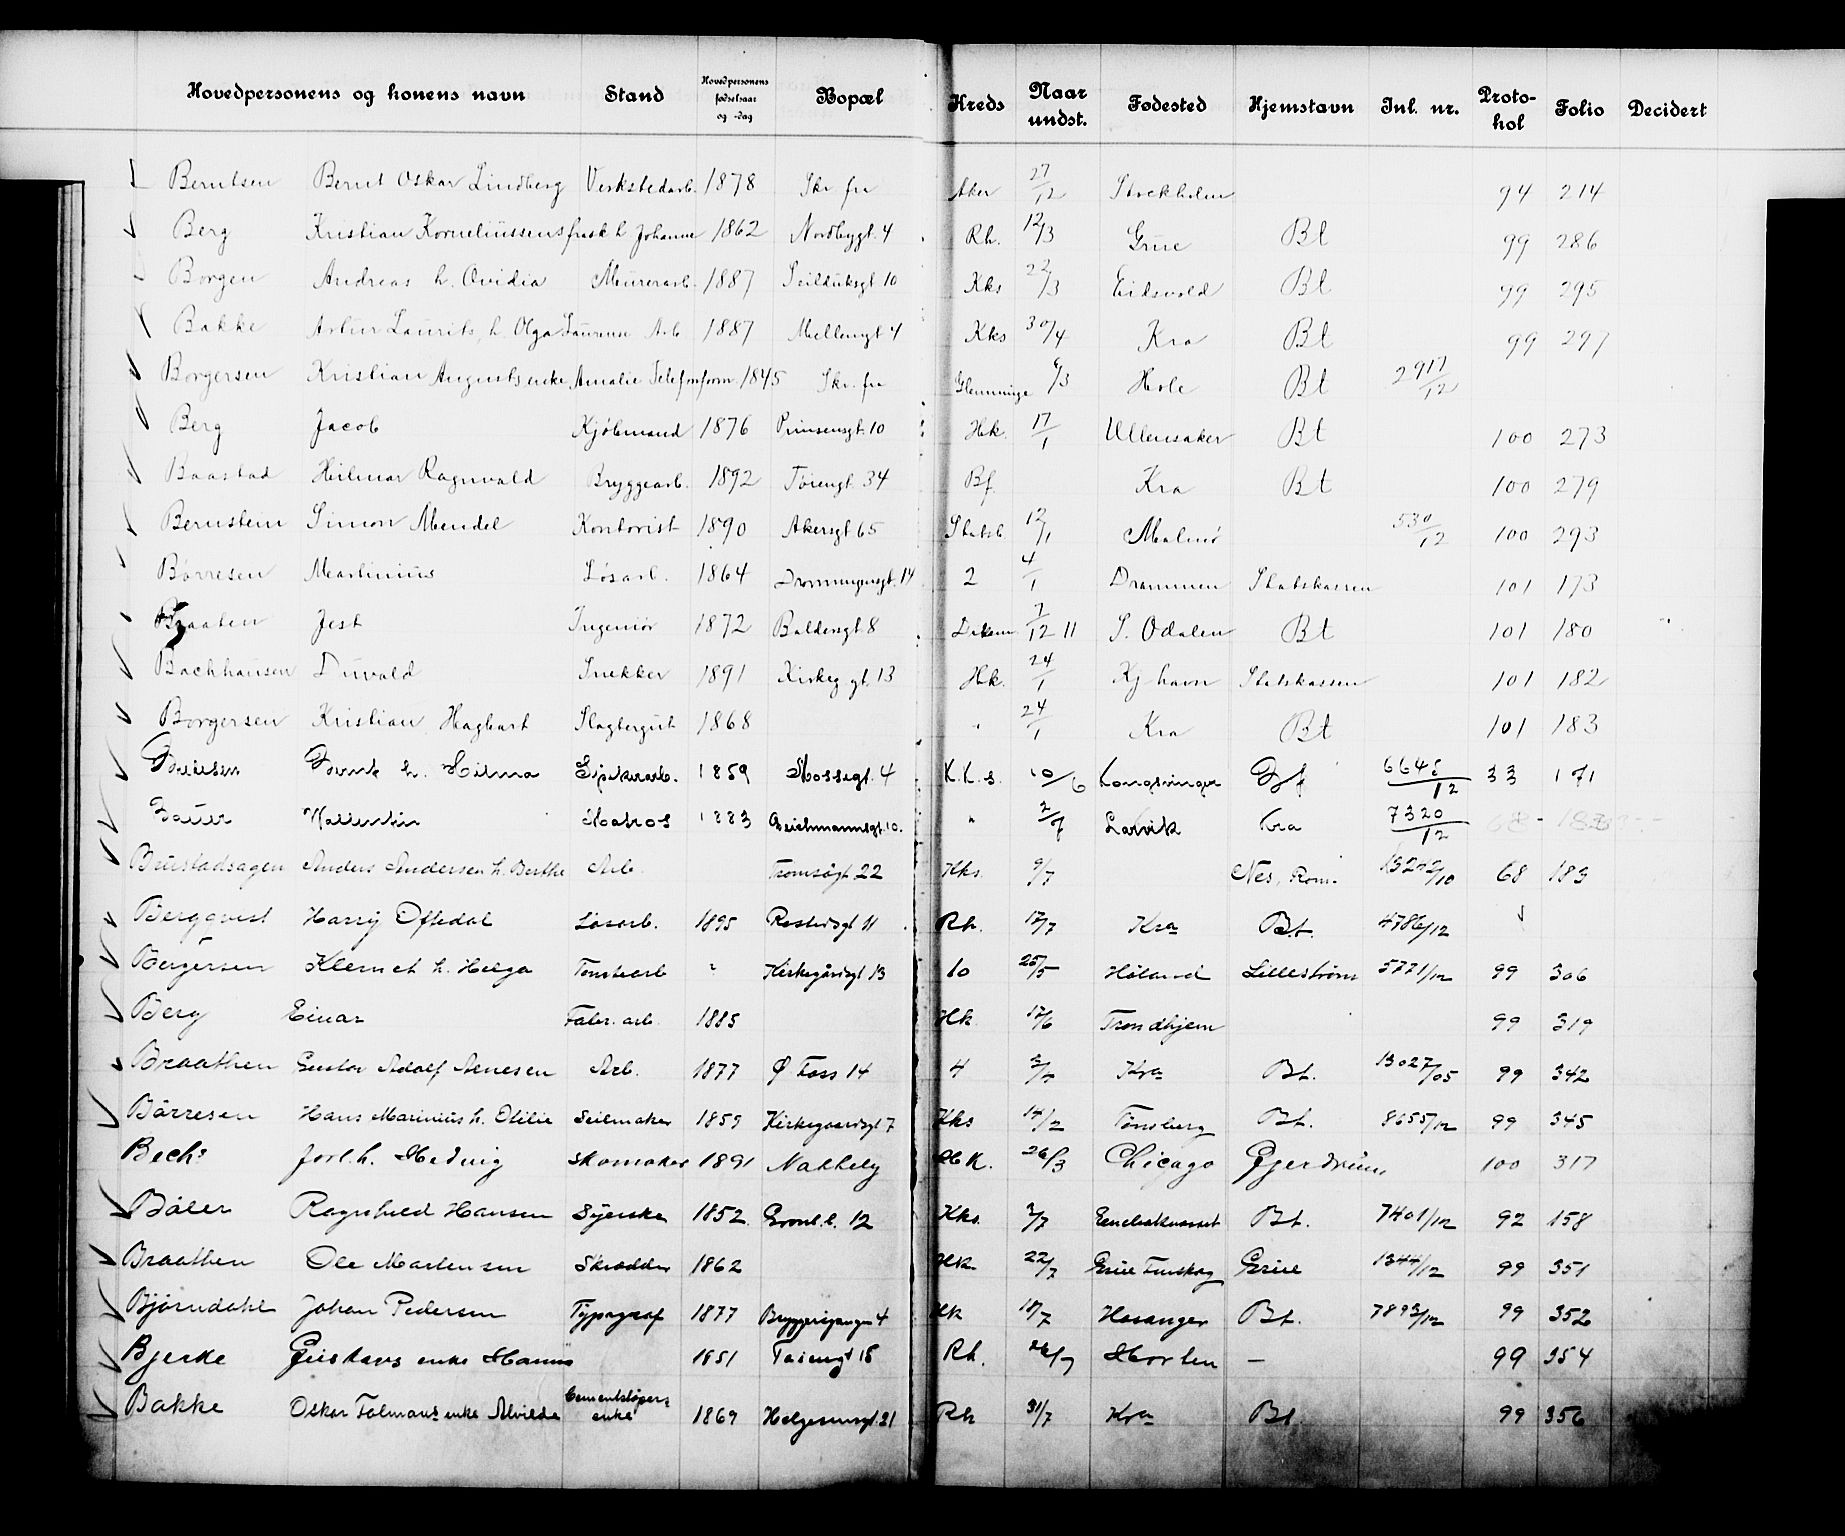 Hovedpersonens og konens navn Stand Hovedpersonens fødselsaar og -dag Bopæl Kreds Naar undst. Fødested Hjemstavn Inl. nr. Protokol Folio Decidert
Berntsen Bernt Oskar Lindberg Verkstedarb. 1878 Skr fru Aker 27/12 Stockholm 94 214
Berg Kristian Korneliussens frask h Johanne 1862 Nordbygt. 4 Rh. 12/3 Grue Bt 99 286
Borgen Andreas h. Ovidia Murerarb. 1887 Seilduksgt 10 Kks 22/3 Eidsvold Bt 99 295
Bakke Artur Laurits, h. Olga Laurense Arb 1887 Møllergt 4 Kks 30/4 Kra Bt 99 297
Borgersen Kristian Augusts enke Amalie Telefonform 1845 Skr. fru Glemminge 6/3 Hole Bt 2917/12
Berg Jacob Kjøbmand 1876 Prinsensgt. 10 Hk. 17/1 Ullensaker Bt 100 273
Baastad Hilmar Ragnvald Bryggearb. 1892 Tøiengt 34 Bf. Kra Bt 100 279
Bernstein Simon Mendel Kontorist 1890 Akersgt 65 Statsb 12/1 Malmø 530/12 100 293
Børresen Martinius Løsarb. 1864 Dronningensgt. 14 2 4/1 Drammen Statskassen 101 173
Braaten Jest Ingeniør 1872 Baldersgt 8 Drammen 7/12 11 S. Odalen Bt 101 180
Bachhausen Duvald Snekker 1891 Kirkeg gt. 13 Hk. 24/1 Kj havn Statskassen 101 182
Borgersen Kristian Hagbart Slagtergut 1868 " 24/1 Kra Bt 101 183
h. Hilma 1859 Mossegt. 4 K.K.s. 10/6 Kongsvinger 33 171
Bauer Matros 1883 Deichmannsgt. 10. " 2/7 Larvik Kra 7320/12
Brustadsagen Anders Andersen h. Berthe Arb. Tromsøgt 22 Kks. 9/7 Nes, Rom. 13242/10 68 183
Bergqvist Harry Oftedal Løsarb. 1895 Rostedsgt 11 Rh. 17/7 Kra Bt. 4786/12
Bergersen Klemet h. Helga Tomtearb " Kirkegårdgt 13 10 25/5 Høland Lillestrøm 5771/12 99 306
Berg Einar Fabr. arb. 1885 Hk. 17/6 Trondhjem 99 319
Braathen Gustav Adolf Arnesen Arb. 1877 Ø Foss 14 4 Kra Bt. 13027/05 99 342
Børresen Hans Marinius h. Otilie Seilmaker 1859 Kirkegaardsgt 7 Kks 14/2 Tønsberg Bt. 8655/12 99 345
Bech: Jorl. h. Hedvig Skomaker 1891 Nakkely Hk. 26/3 Chicago Gjerdrum, 100 317
Bøler Ragnhild Hansen Syerske 1852 Grønl. l. 12 Kks. 2/7 Enebakneset Bt. 7401/12 92 158
Braathen Ole Martensen Skrædder 1862 Hk. 22/7 Grue Finskog Grue 1344/12 99 351
Bjørndahl Johan Pedersen Typograf 1877 Bryggerigangen 4 Hk 18/7 Hosanger Bt. 7893/12 99 352
Bjerke Gustavs enke Hanna 1851 Tøiengt 18 Rh. 26/7 Horten — 99 354
Bakke Oskar Folmans enke Alvilde Cementstøpers enke 1869 Helgesensgt. 31 Rh 31/7 Kra Bt 99 356